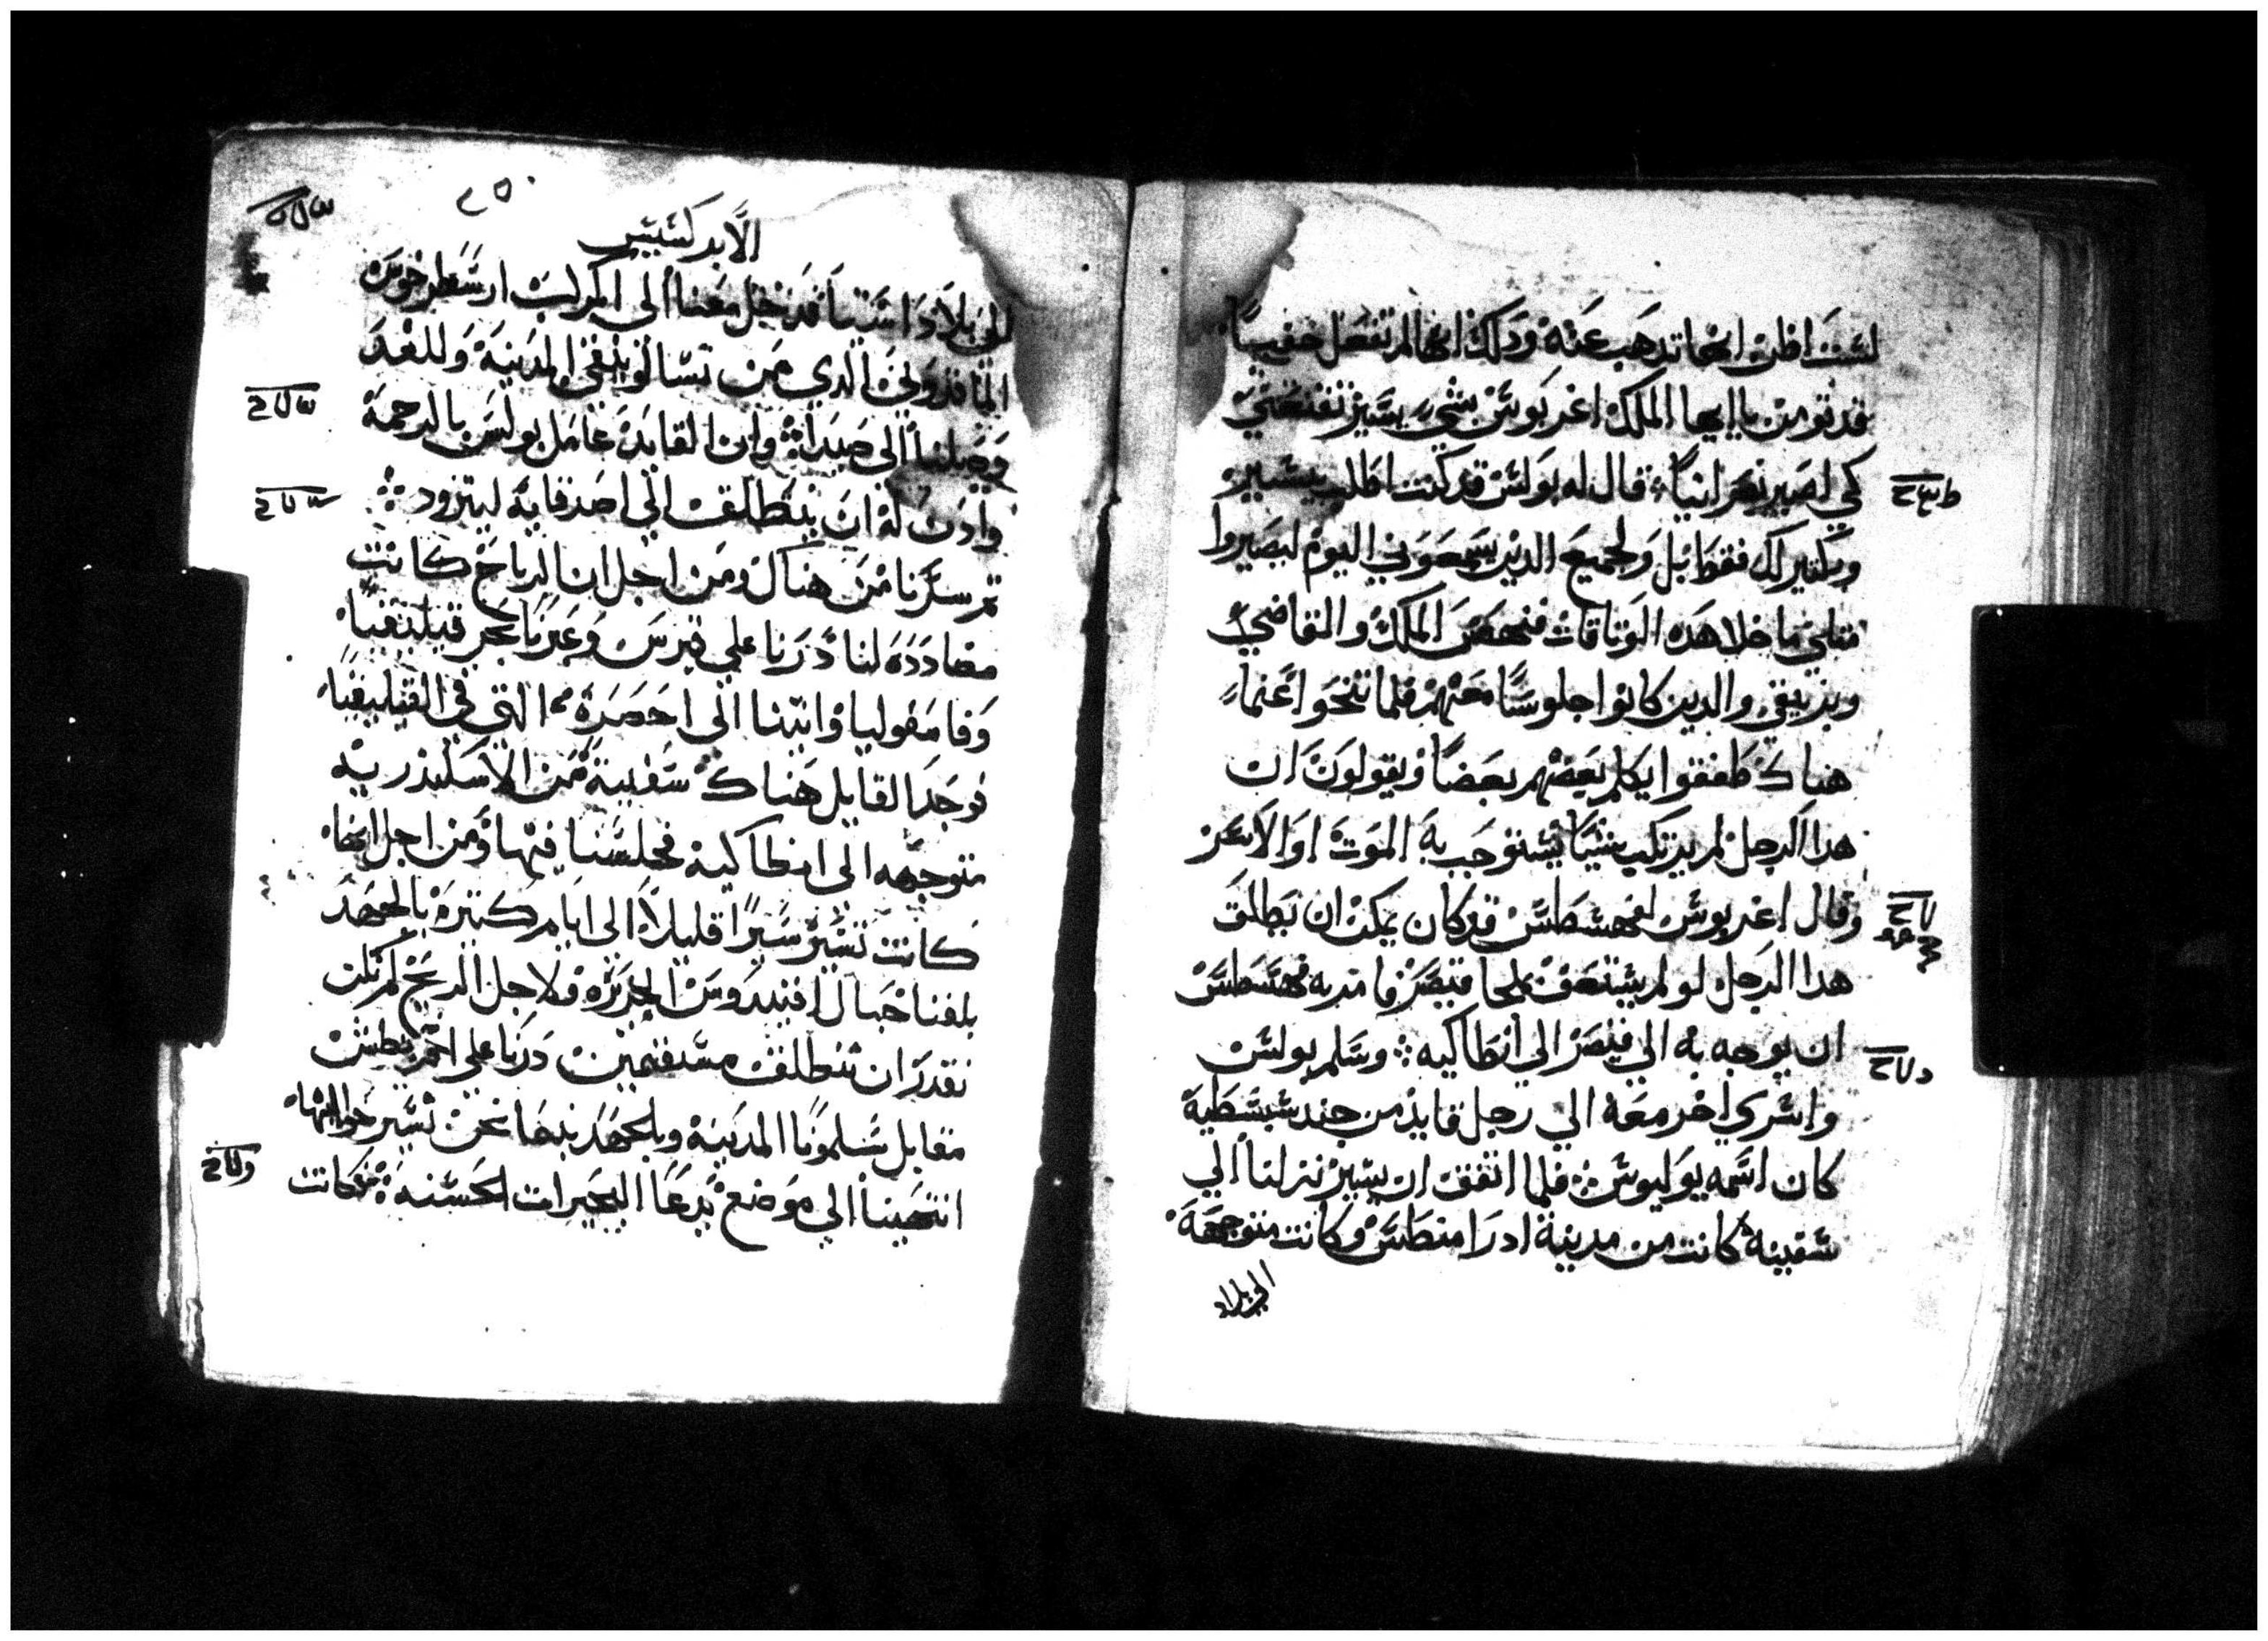 لست اظن انها تذهب عنه ودلك انها لم تفعل خفيـًا
قد تومن يا ايها الملك اغربوس بشي يسير تقنعني
كي اصير نصرانيًا قال له بولس قد كنت اطلب بيسير
وبكثير لك فقط بل ولجميع الدين يسمعوني اليوم ليصيروا
متلي ما خلا هده الوتاقات فنهض الملك والقاضي
وبرنيقي والدين كانوا جلوسًا معهم فلما تنحوا عنما
هناك طفقوا يكلم بعضهم بعضًا ويقولون ان
هدا الرجل لم يرتكب شيًا يستوجب به الموت او الاسر
وقال اغربوس لفهسطس قد كان يمكن ان يطلق
هدا الرجل لو لم يستعف بملجا قيصر فامر به فهسطس
ان يوجه به الي قيصر الي انطاكيه وسلم بولس
واسري اخر معه الي رجل قايد من جند سبسطية
كان اسمه يوليوس فلما اتفق ان يسير نزلنا الي
سفينه كانت من مدينة ادرامنطس وكانت متوجهة
الي بلاد
٢٥٠
الابركسيس
الي بلاد اسيا فدخل معنا الي المركب ارسطرخوس
الماقدوني الدي من تسالونيقي المدينة وللغد
وصلنا الي صيدا وان القايد عامل بولس بالرحمة
وادن له ان ينطلق الي اصدقايه ليتزود
تم سرنا من هناك ومن اجل ان الرياح كانت
مضاددة لنا درنا علي قبرس وعبرنا بحر قيليقيا
وفامفوليا واتينا الي احصرة التي في القيليقيا
فوجد القايد هناك سفينة من الاسكندرية
متوجهه الي انطاكية فجلسنا فيها ومن اجل انها
كانت تسير سيرًا قليلاً الي ايام كتيرة بالجهد
بلغنا حبال اقنيدوس الجزيره ولاجل الريح لم نكن
نقدر ان ننطلق مستقيمين درنا علي اقريطش
مقابل سلمونا المدينه وبالجهد بينما نحن نسير حواليها
انتهينا الي موضع يدعا البحيرات الحسنه فكانت